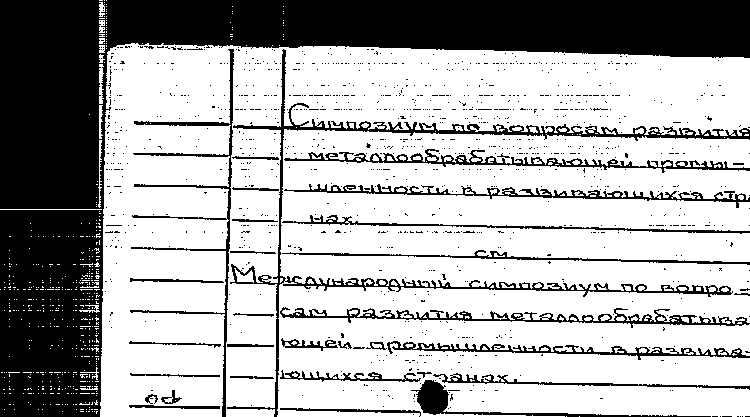 Симпозиум по вопросам развития
металлообрабатывающей промы-
шленности в развивающихся стра
нах.
см. :
Международный симпозиум по вопро-
сам развития металлообрабатыва
ющей промышленности в развива-
ющихся странах.